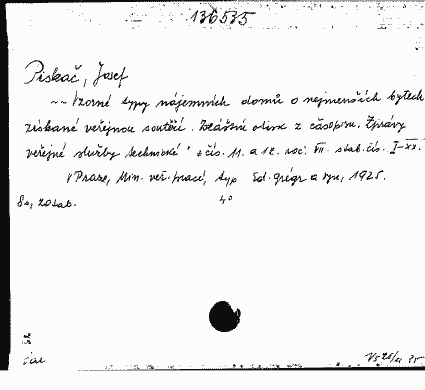 136535
Piskač, Josef
~~ Vzorné typy nájemních domů o nejmenších bytech
získané veřejnou soutěží. Zvláštní otisk z časopisu. Zprávy
veřejné služby technické" z čís. 11. a 12. roč. VII. stab. čís. I-XX.
V Praze, Min. veř. prací, typ Ed. Grégr a syn, 1925.
8a, 20 tab. 4°